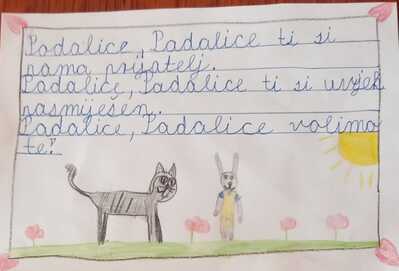 Padalice, Padalice ti si
nama prijatelj.
Padalice, Padalice ti si uvjek
nasmiješen.
Padalice, Padalice volimo
te!